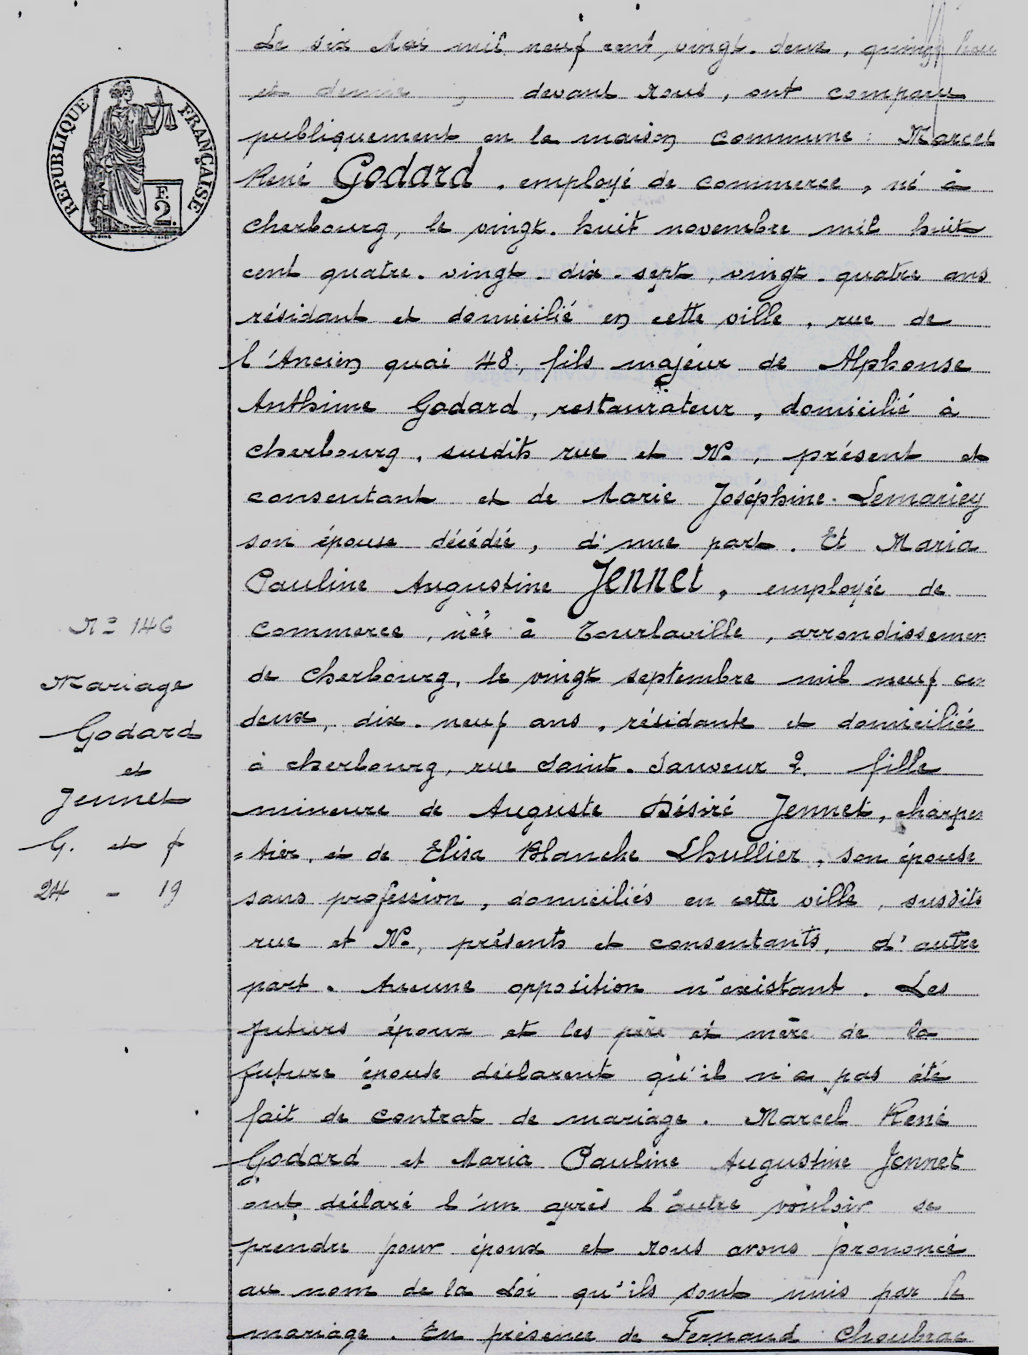 RÉPUBLIQUE FRANÇAISE
F.
2.
Le six Mai mil neuf cent vingt-deux, quinze heures
et demie, devant Nous, ont comparu
publiquement en la maison commune : Marcel
René Godard, employé de commerce, né à
Cherbourg, le vingt-huit novembre mil huit
cent quatre-vingt-dix-sept, vingt-quatre ans
résidant et domicilié en cette ville, rue de
l'Ancien quai 48, fils majeur de Alphonse
Anthime Godard, restaurateur, domicilié à
Cherbourg, susdits rue et No, présent et
consentant et de Marie Joséphine Lemariey
son épouse décédée, d'une part. Et Maria
Pauline Augustine Jennet, employée de
commerce, née à Tourlaville, arrondissemen
de Cherbourg, le vingt septembre mil neuf ce
deux, dix-neuf ans, résidante et domiciliée
à Cherbourg, rue Saint-Sauveur 2, fille
mineure de Auguste Désiré Jennet, charpen
=tier, et de Elisa Blanche Lhullier, son épouse
sans profession, domiciliés en cette ville, susdits
rue et No, présents et consentants, d'autre
part. Aucune opposition n'existant. Les
futurs époux et les père et mère de la
future épouse déclarent qu'il n'a pas été
fait de contrat de mariage. Marcel René
Godard et Maria Pauline Augustine Jennet
ont déclaré l'un après l'autre vouloir se
prendre pour époux et Nous avons prononcé
au nom de la Loi qu'ils sont unis par le
mariage. En présence de Fernand Choubrac
No 146
Mariage
Godard
et
Jennet
G. et f
24 - 19